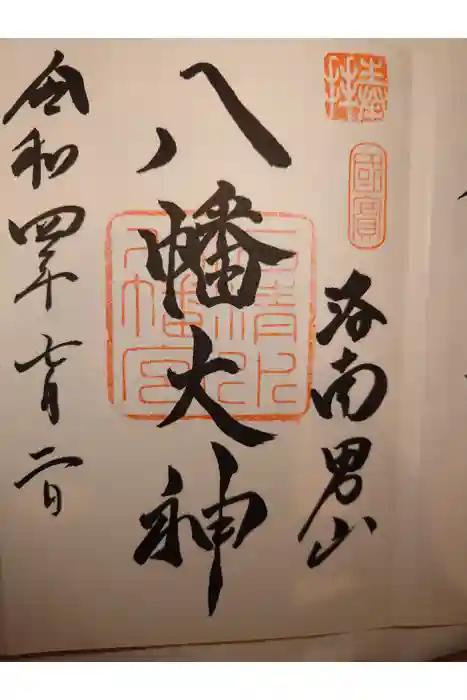 奉拝
國寶
洛南男山
八幡大神
石清水
八幡宮
令和四年七月二日